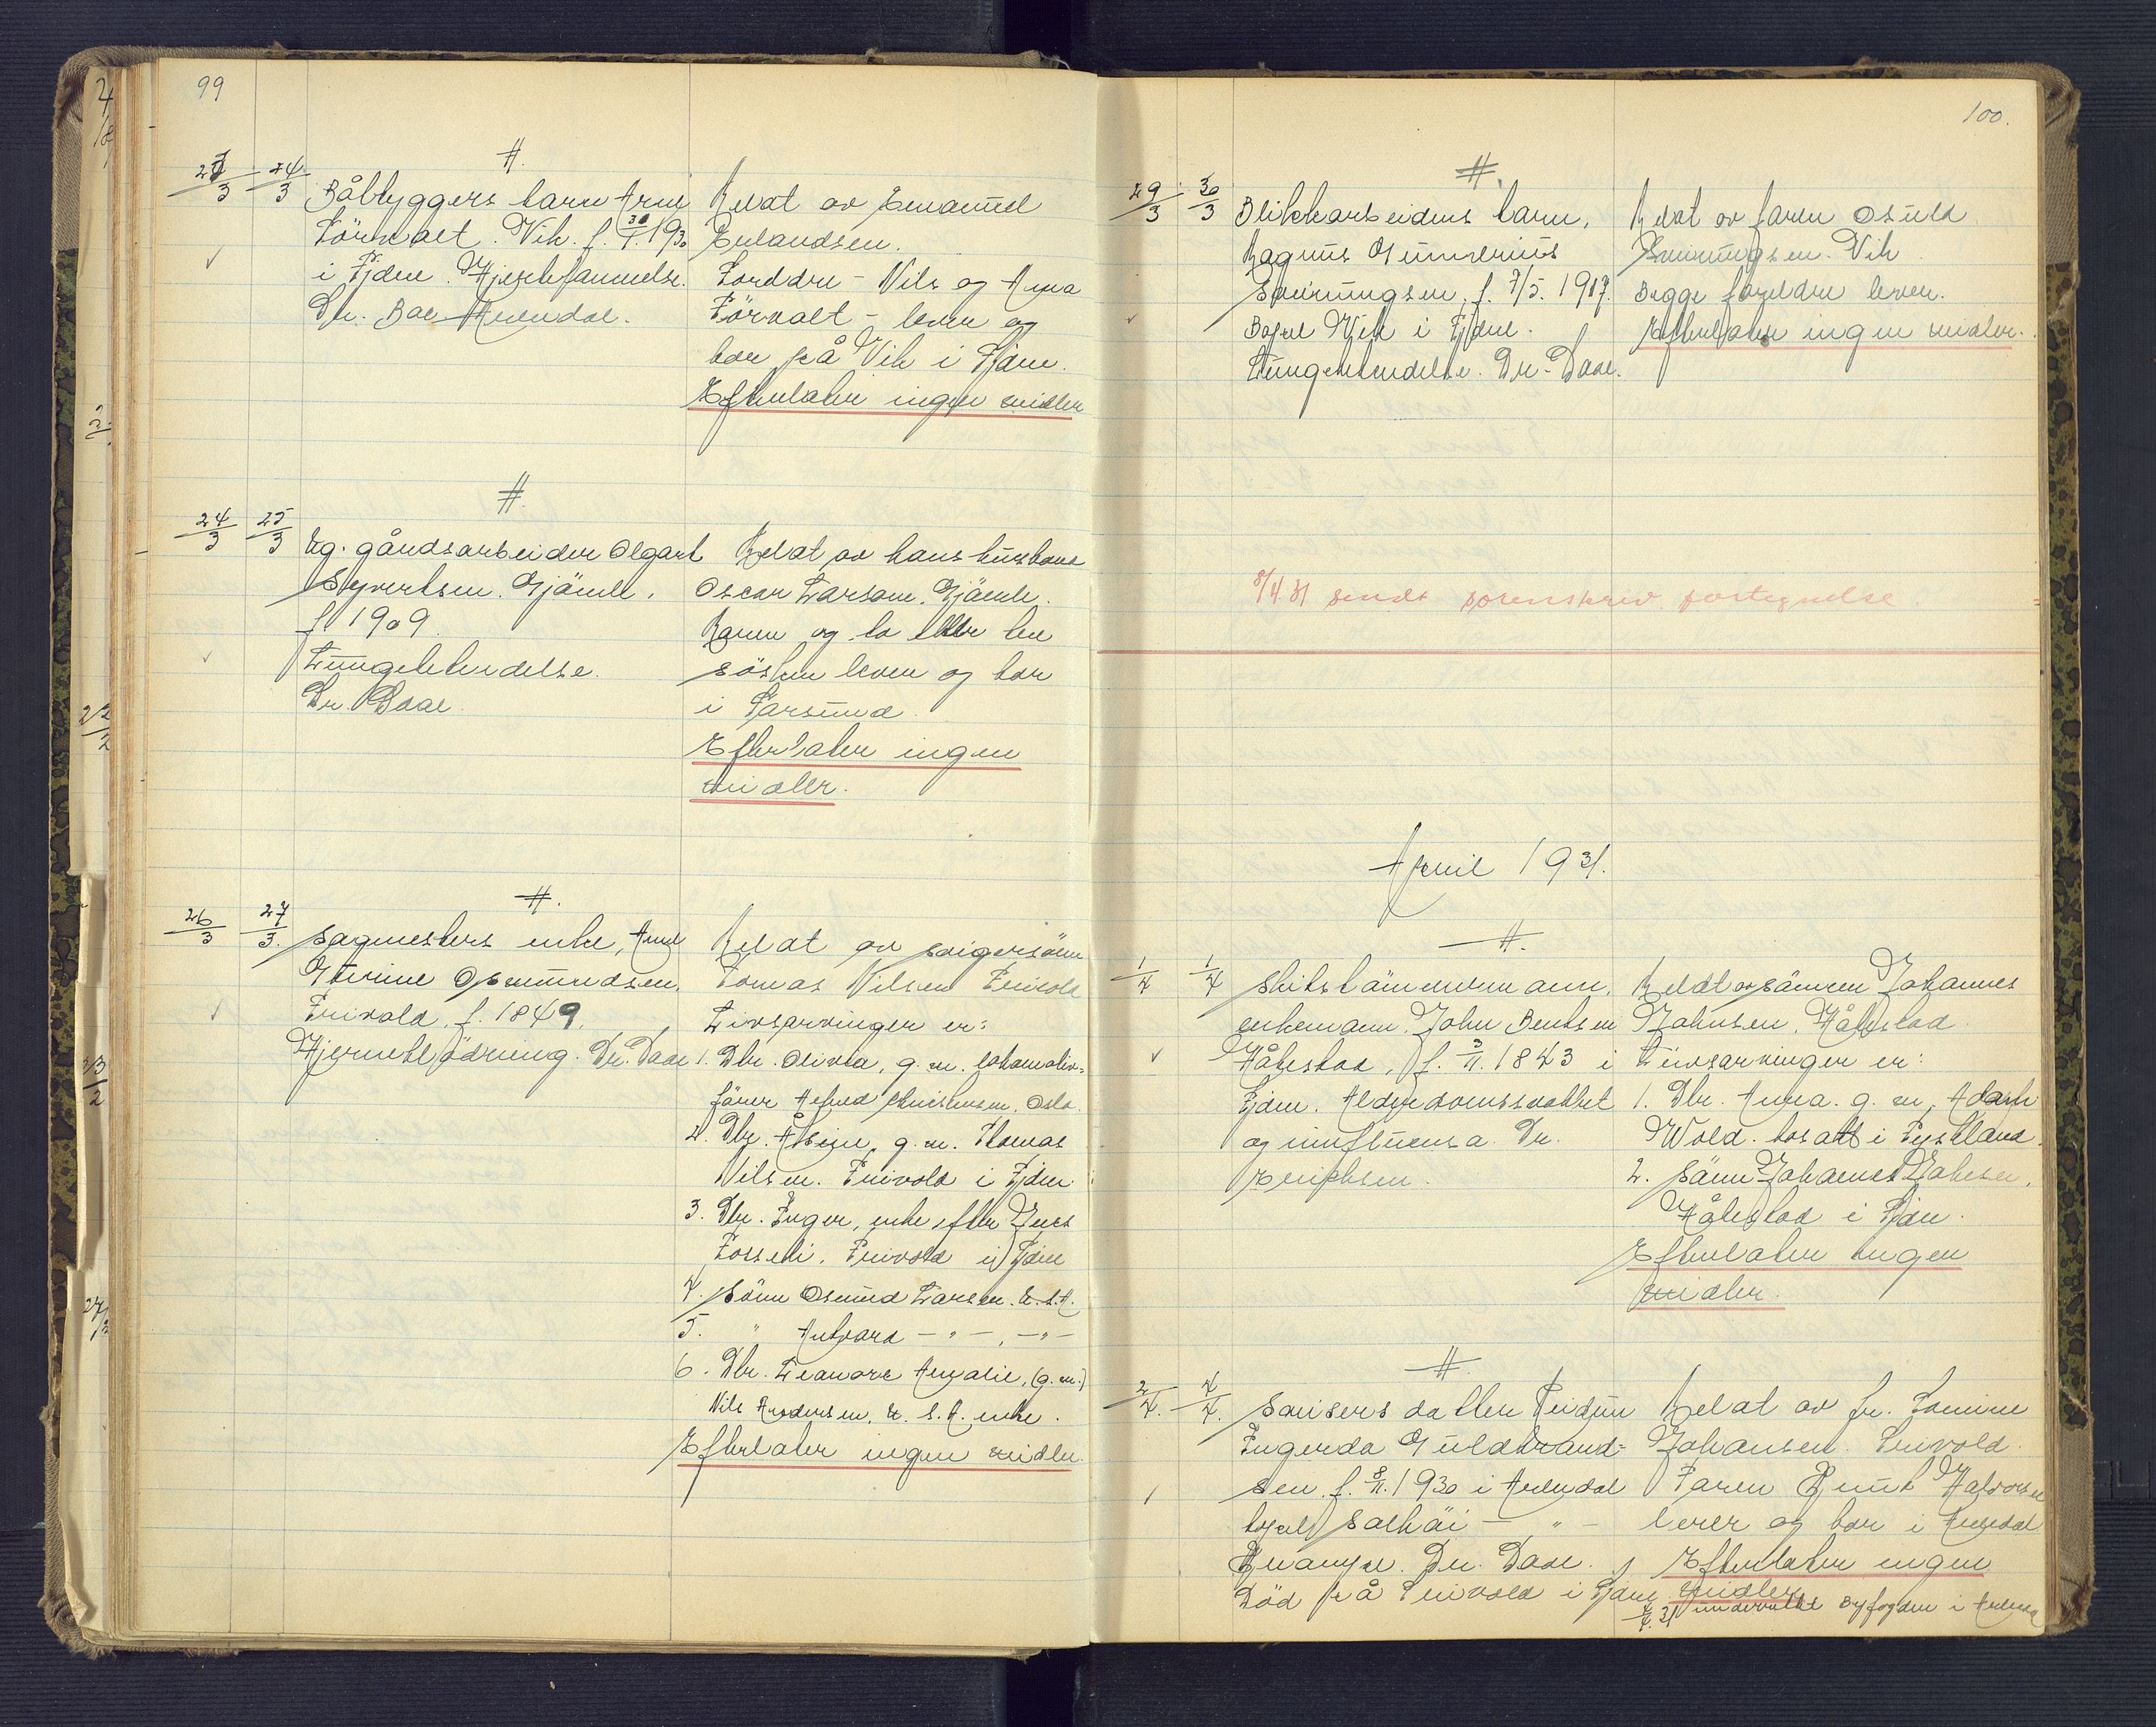 99
#.
23/3 24/3 Båtbyggers barn Arne
Törvalt. Vik. f. 30/1. 1930
i Fjære. Hjertelammelse.
Dr. Boe Arendal.
Meldt av Emanuel
Erlandsen.
Forældre - Nils og Anna
Törvalt - lever og
bor på Vik i Fjære.
Efterlater ingen midler
#.
24/3 25/3 Ug. gårdsarbeider Olgart
Syvertsen. Gjömle.
f. 1909
Lungebetendelse.
Dr. Daae.
Meldt av hans husbond
Oscar Larsen. Gjömle.
Faren og to eller tre
sösken lever og bor
i Farsund.
Efterlater ingen
midler.
#.
26/3 27/3. Sagmesters enke, Anne
Gurine Osmundsen,
Frivold. f. 1849.
Hjerneblödning. Dr. Daae
Meldt av svigersönn
Tomas Nilsen Frivold
Livsarvinger er:
1. Dtr. Olivia, g. m. lokomotiv-
förer Alfred Christensen. Oslo.
2. Dtr. Alvine, g. m. Thomas
Nilsen. Frivold i Fjære
3. Dtr. Inger, enke efter Jens
Fosseli. Frivold i Fjære
4. Sönn Osmund Larsen. U.S.A.
5. " Antvard - " - , - " -
6. Dtr. Leanore Amalie, (g. m.)
Nils Andersen, U.S.A. enke.
Efterlater ingen midler.
100.
#.
29/3 30/3 Blikkarbeiders barn,
Magnus Gunnerius
Sveinungsen, f. 7/5. 1917.
Bopel Vik i Fjære.
Lungebetendelse. Dr. Daae.
Meldt av faren Osuld
Sveinungsen. Vik
Begge foreldre lever.
Efterlater ingen midler.
8/4 31 sendt sorenskriv fortegnelse
April 1931.
#.
1/4 1/4 Skibstömmermann,
enkemann. John Bentsen
Håbestad, f. 3/11. 1843 i
Fjære. Alderdomssvakhet
og influensa. Dr.
Erichsen.
Meldt av sönnen Johannes
Johnsen. Håbestad.
Livsarvinger er:
1. Dtr. Anna. g. m. Adam
Wold. bosatt i Tyskland.
2. Sönn Johannes Johnsen,
Håbestad i Fjære.
Efterlater ingen
midler.
#.
2/4. 4/4. Snisers datter Reidun
Ingerda Guldbrand-
sen. f. 8/11. 1930 i Arendal
bopel Solhöi - " -
Krampe. Dr. Daae.
Död på Frivold i Fjære
Meldt av fr. Tomine
Johansen. Frivold.
Faren Knut Halvorsen
lever og bor i Arendal
Efterlater ingen
midler
4/4. 31 underrettet Byfogden i Arendal